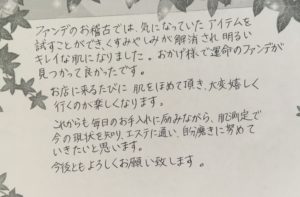 ファンデのお稽古では、気になっていたアイテムを
試すことができくすみやしみが解消され明るい
キレイな肌になりました。おかげ様で運命のファンデが
見つかって良かったです。
お店に来るたびに肌をほめて頂き、大変嬉しく
行くのが楽しくなります。
これからも毎日のお手入れに励みながら、肌測定で
今の現状を知り、エステに通い、自分磨きに努めて
いきたいと思います。
今後ともよろしくお願い致します。